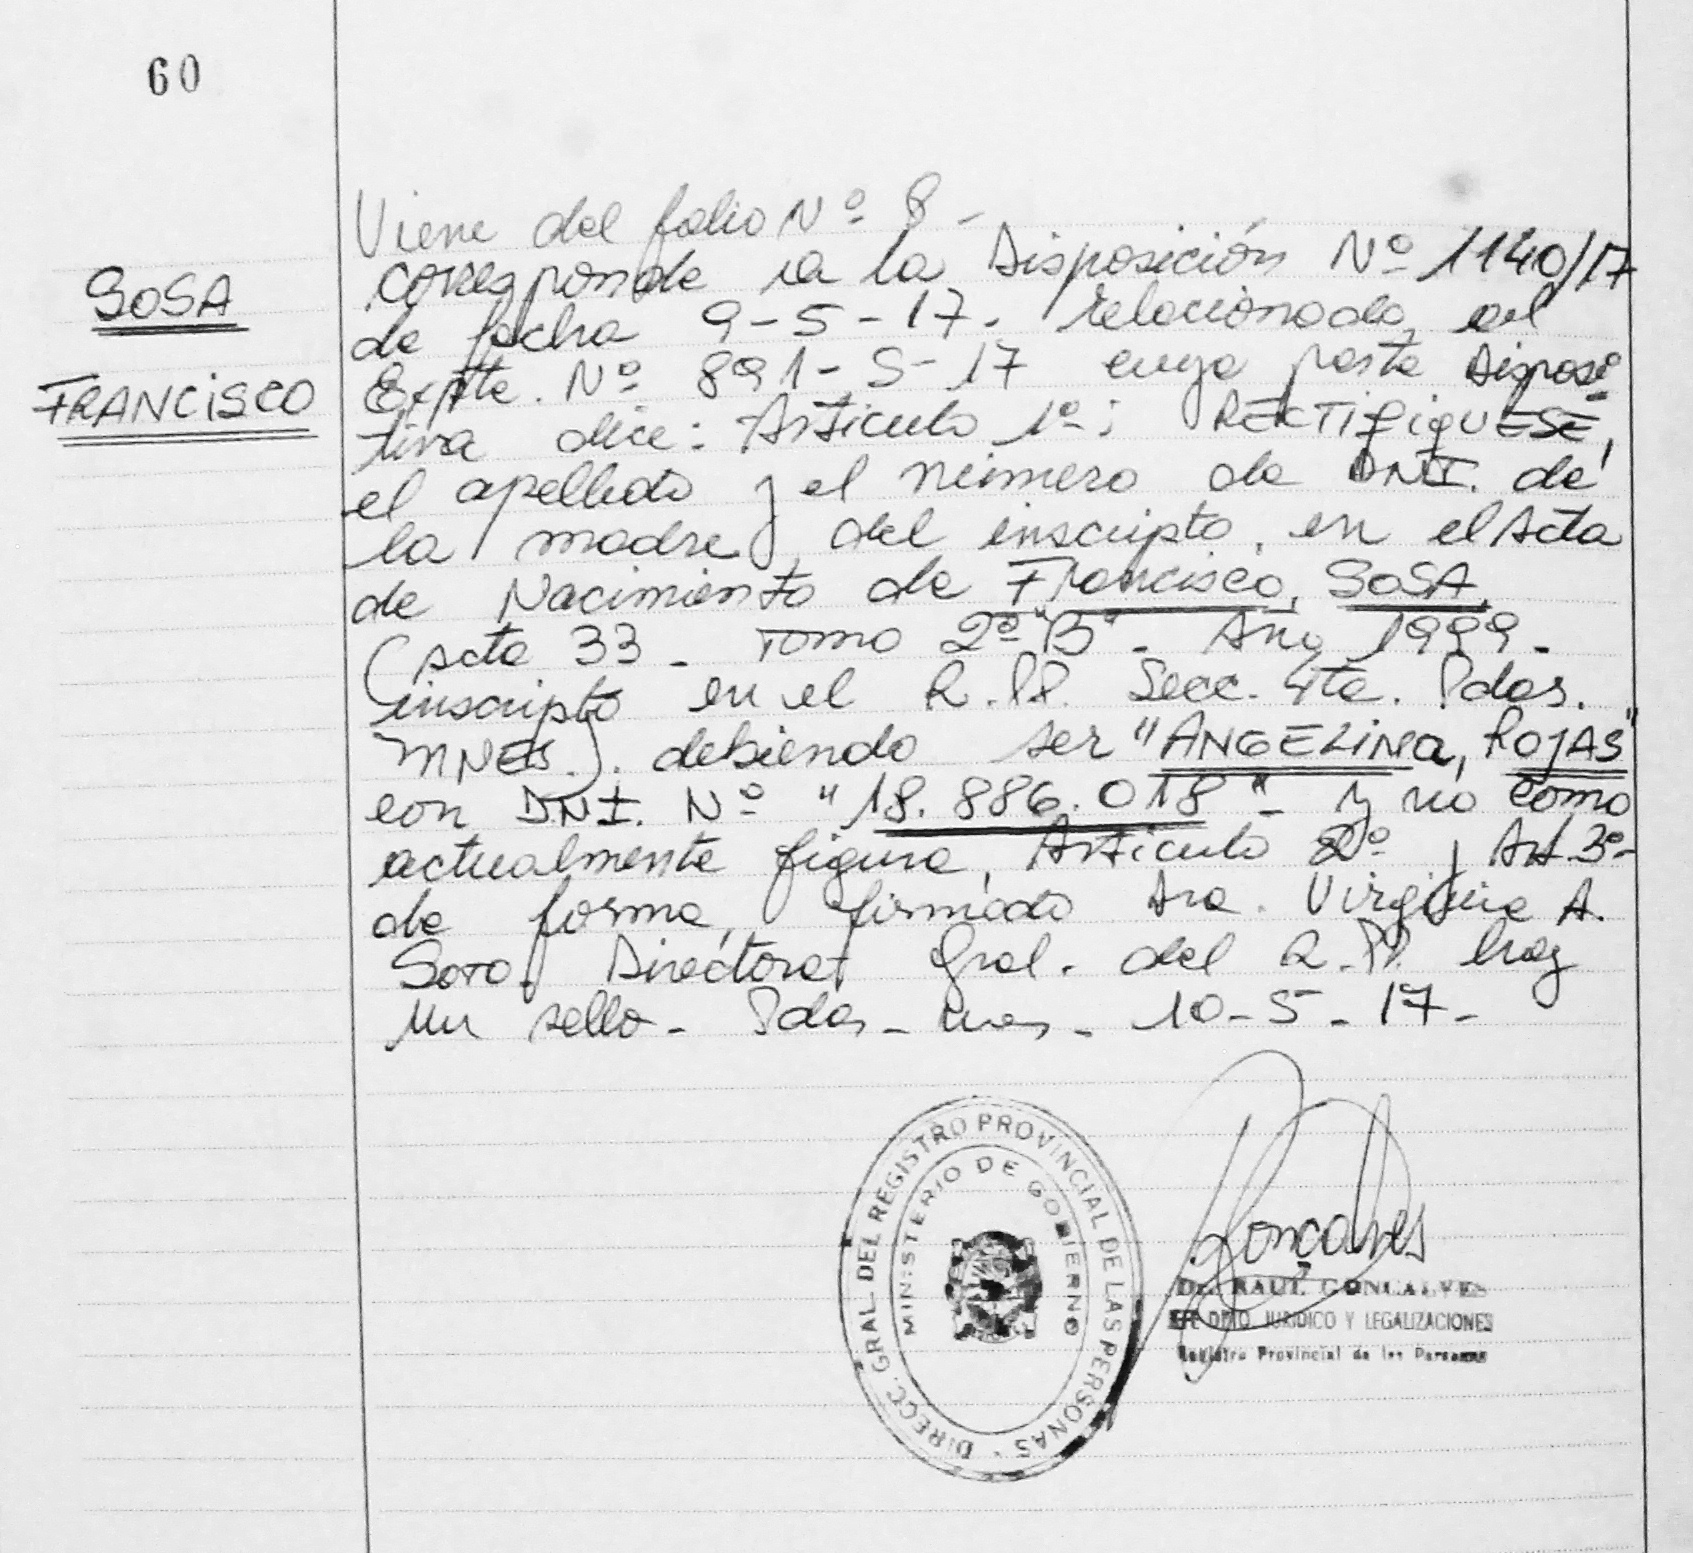 60
SOSA
FRANCISCO
Viene del folio Nº 8 -
corresponde a la Disposición Nº 1140/17
de fecha 9-5-17. relacionado al
Expte. Nº 891-S-17 cuya parte Disposi
tiva dice: Articulo 1º: RECTIFIQUESE,
el apellido y el número de DNI. de
la madre del inscripto, en el Acta
de Nacimiento de Francisco, SOSA,
(Acta 33 - Tomo 2º "B" - Año 1999 -
inscripto en el R.P.P. Secc. 4ta. Pdas.
MNES.). debiendo ser "ANGELINA, ROJAS"
con DNI. Nº "18.886.018" - y no como
actualmente figura, Articulo 2º y Art. 3º-
de forma, firmado Dra. Virginia A.
Soto. Directora Gral. del R.P.P. hay
un sello - Pdas - Mnes - 10-5-17-
DIRECC. GRAL. DEL REGISTRO PROVINCIAL DE LAS PERSONAS
MINISTERIO DE GOBIERNO
Gonçalves
Dr. RAUL GONCALVES
JEFE DPTO. JURIDICO Y LEGALIZACIONES
Registro Provincial de las Personas